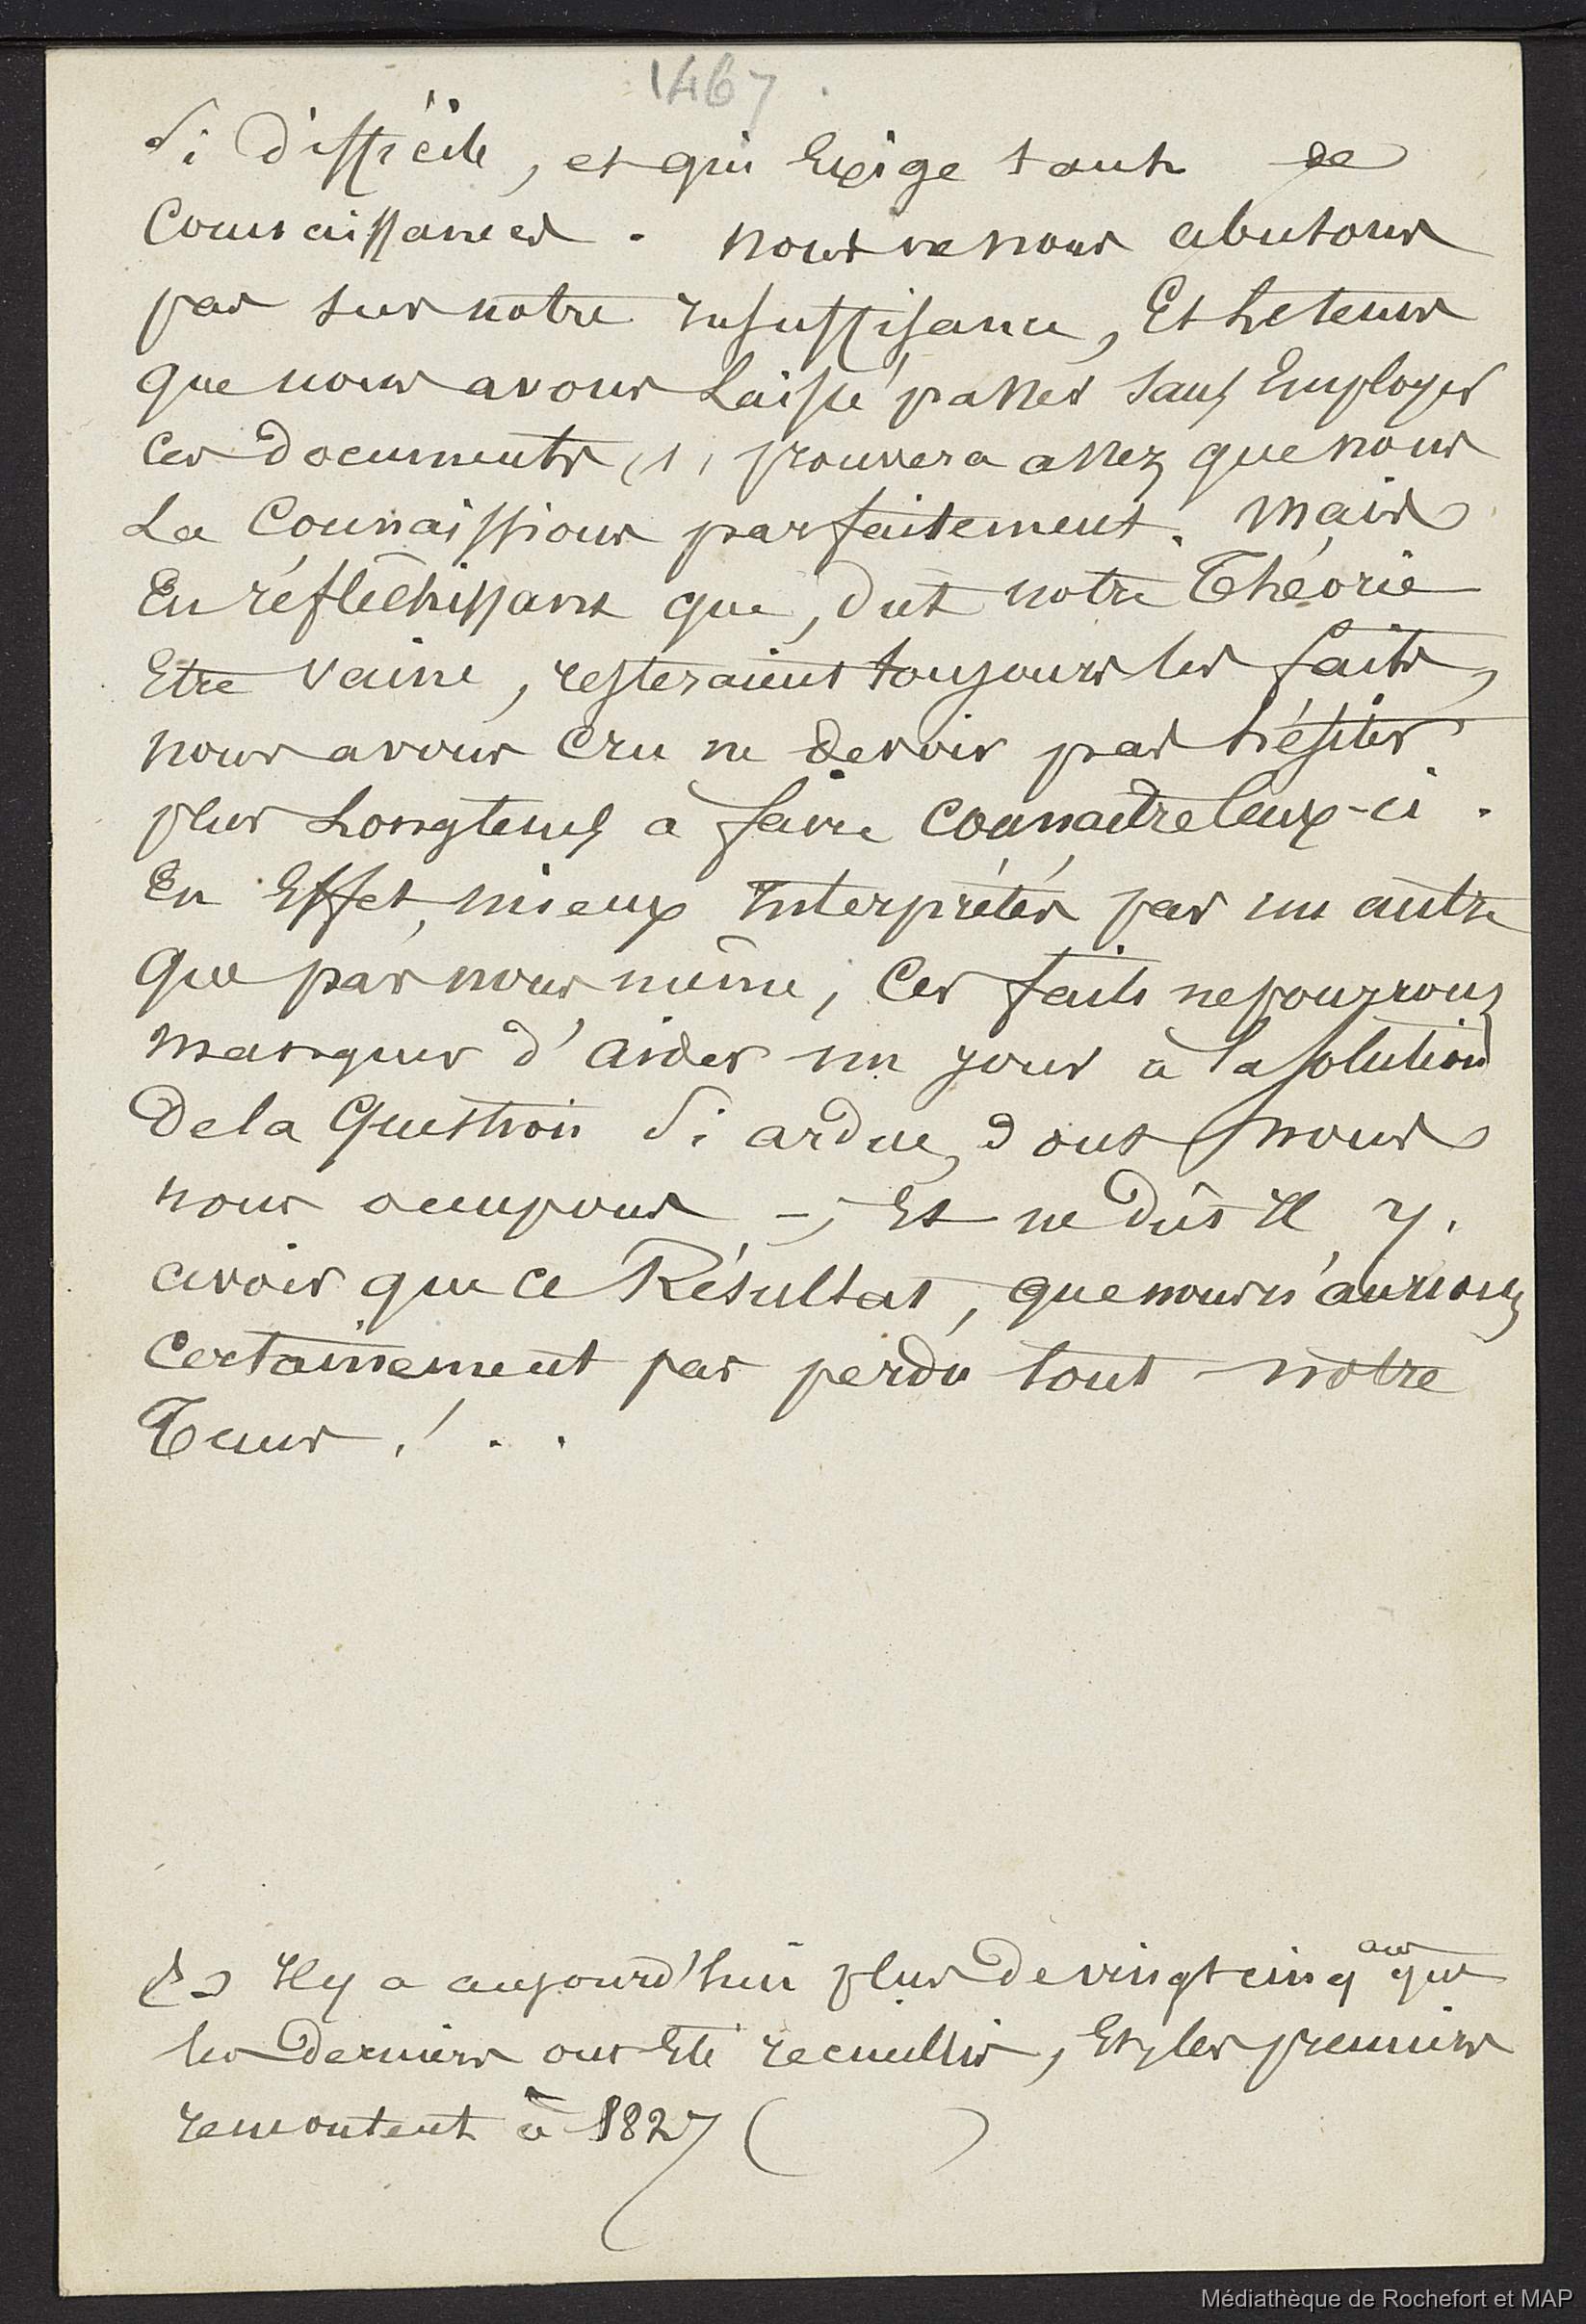 1467.
Si Difficile, et qui Exige tant de
Connaissances. nous ne nous abusons
pas sur notre Insuffisance, Et le tems
que nous avons Laissé passer sans Employer
ces Documents (1) prouvera assez que nous
La Connaissions parfaitement. Mais
En réfléchissant que, Dut notre Théorie
Etre Vaine, resteraient toujours les faits,
nous avons Cru ne devoir pas hésiter
plus Longtems à faire Connaitre Ceux-ci.
En Effet, mieux Interprétés par un autre
Que par nous même, Ces faits ne pourrons
manquer d'aider un jour à la solution
De la Question Si ardue, Dont nous
nous occupons -, Et ne Dût Il y.
avoir que ce Résultat, que nous n'aurions
Certainement pas perdu tout notre
Tems ! . .
(1) Il y a aujourd'hui plus De vingt cinq ans que
les Derniers ont Eté recueillis, Et les premiers
remontent à 1827 ( )
Médiathèque de Rochefort et MAP